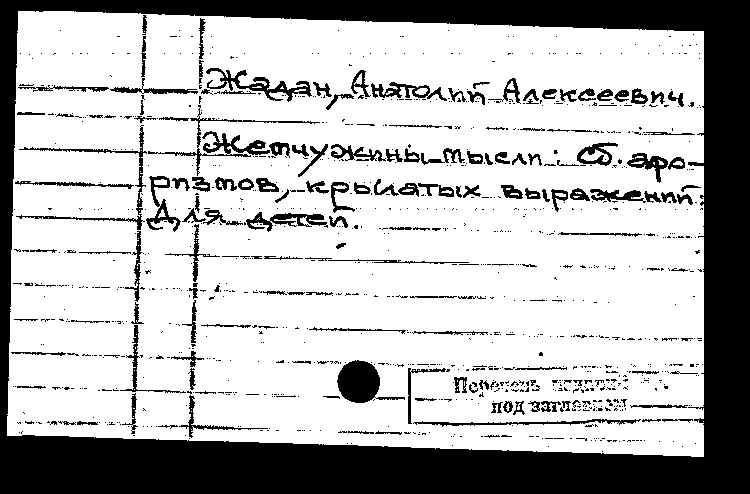 Жадан, Анатолий Алексеевич.
Жемчужины мысли: Сб. афо-
ризмов, крылатых выражений:
Для детей.
Перечень изданий
под заглавием